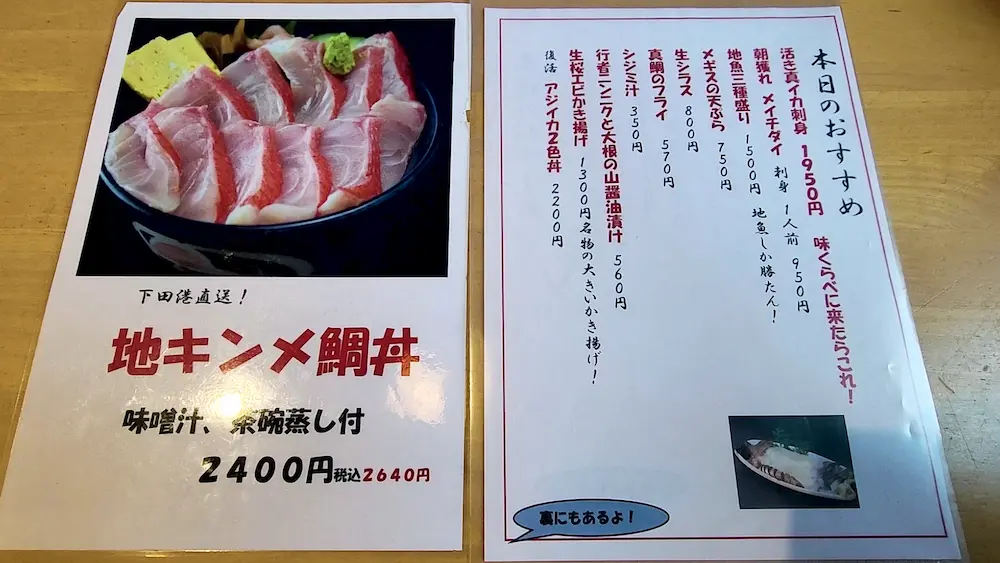 下田港直送！
地キンメ鯛丼
味噌汁、茶碗蒸し付
2400円税込2640円
本日のおすすめ
活き真イカ刺身 1950円 味くらべに来たらこれ！
朝獲れ メイチダイ 刺身 1人前 950円
地魚三種盛り 1500円 地魚しか勝たん！
メキスの天ぷら 750円
生シラス 800円
真鯛のフライ 570円
シジミ汁 350円
行者ニンニクと大根の山醤油漬け 560円
生桜エビかき揚げ 1300円名物の大きいかき揚げ！
復活 アジイカ2色丼 2200円
裏にもあるよ！